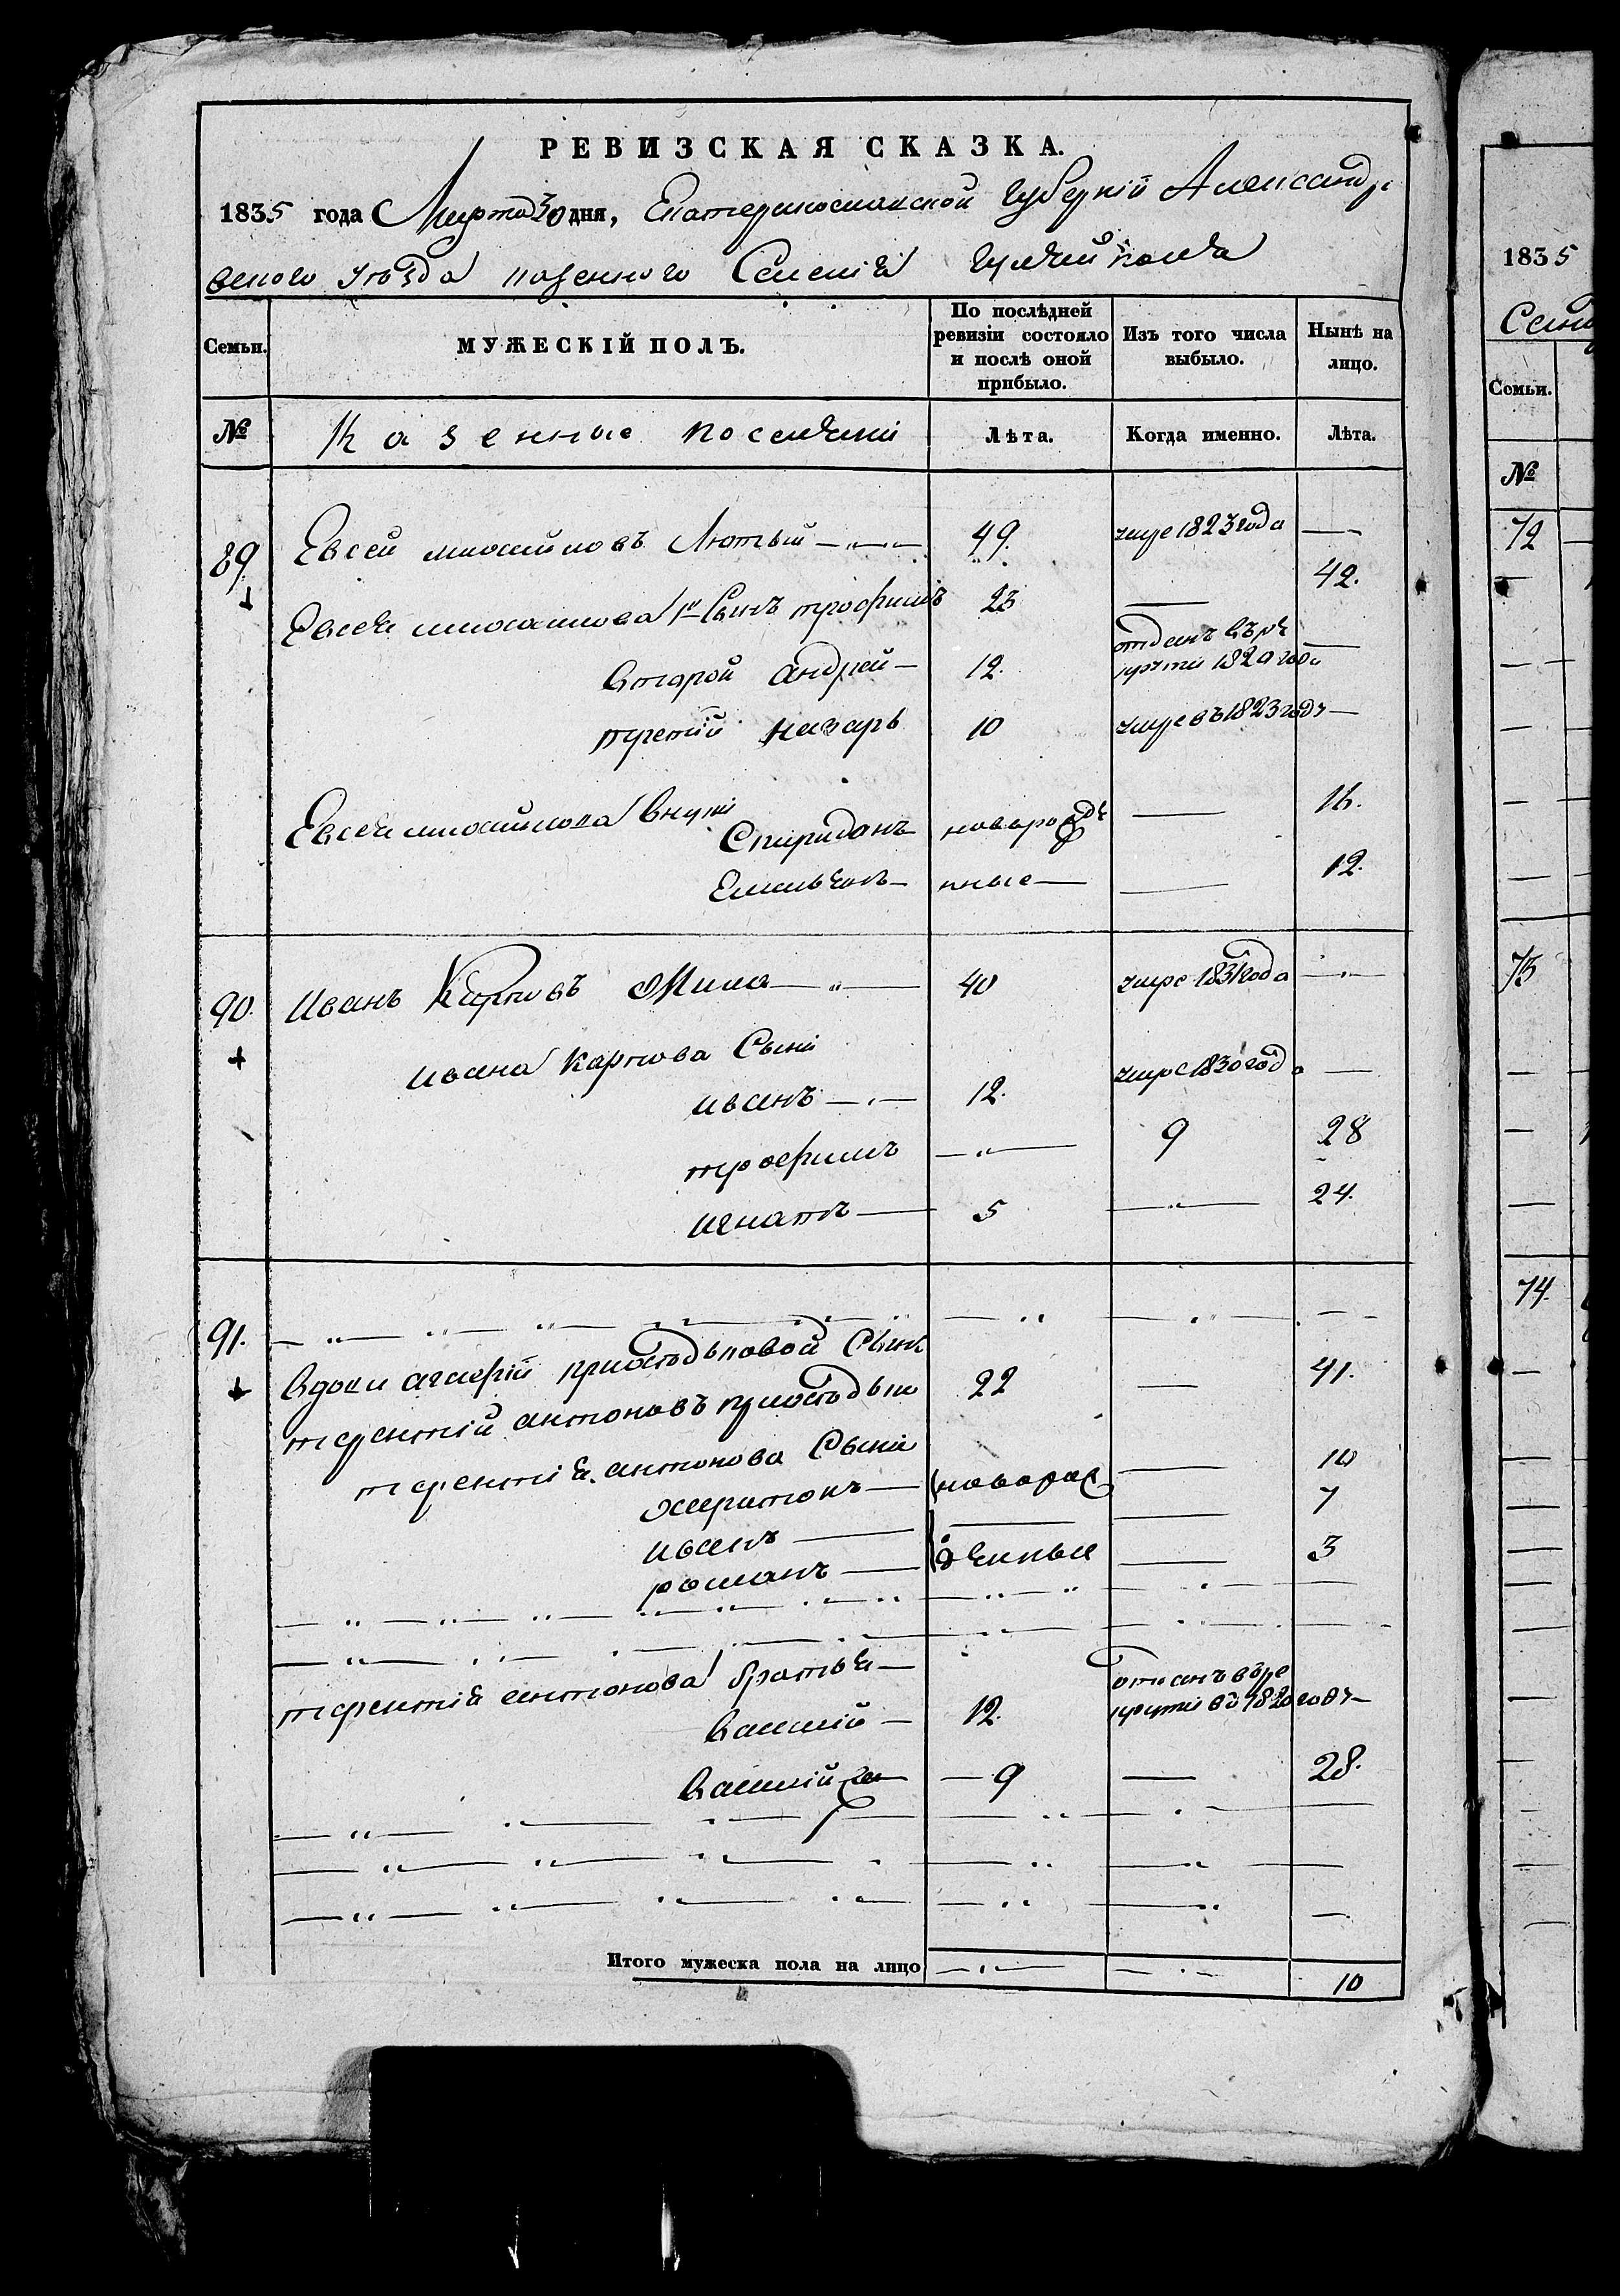 РЕВИЗСКАЯ СКАЗКА.
1835 года Марта 30 дня, Екатеринославской Губернiи Александр
вского Уѣзда казенного Селенiя Гуляйполя
Семьи. МУЖЕСКІЙ ПОЛЪ. По послѣдней ревизіи состояло и послѣ оной прибыло. Изъ того числа выбыло. Нынѣ на лицо.
№ Казенные поселяни Лѣта. Когда именно. Лѣта.
89. Евсей Лютый 49. умре 1823 года —
Евсея 1й Сынъ трофимъ 23 — 42.
второй андрей 12. отданъ въ ре
крути 1820 года —
третiй назаръ 10 умре въ 1823 годе —
Евсея внуки
Спиридонъ новорожде — 16.
Емельянъ нные — 12.
90. Иванъ Карповъ Мина 40 умре 1831 года —
ивана Карпова Сыни
иванъ 12. умре 1830 года —
трофимъ — 9 28
игнатъ 5 — 24.
91.
вдови Сынъ
терентiй антоновъ 22 — 41.
терентiя антонова Сыни
харитонъ новорож — 10
иванъ — — 7
романъ денные — 3
терентiя антонова братья
василiй 12. отданъ въ ре
крути въ 1820 годе —
василiй 9 — 28.
Итого мужеска пола на лицо 10
1835
Семьи.
№
72
73
74.